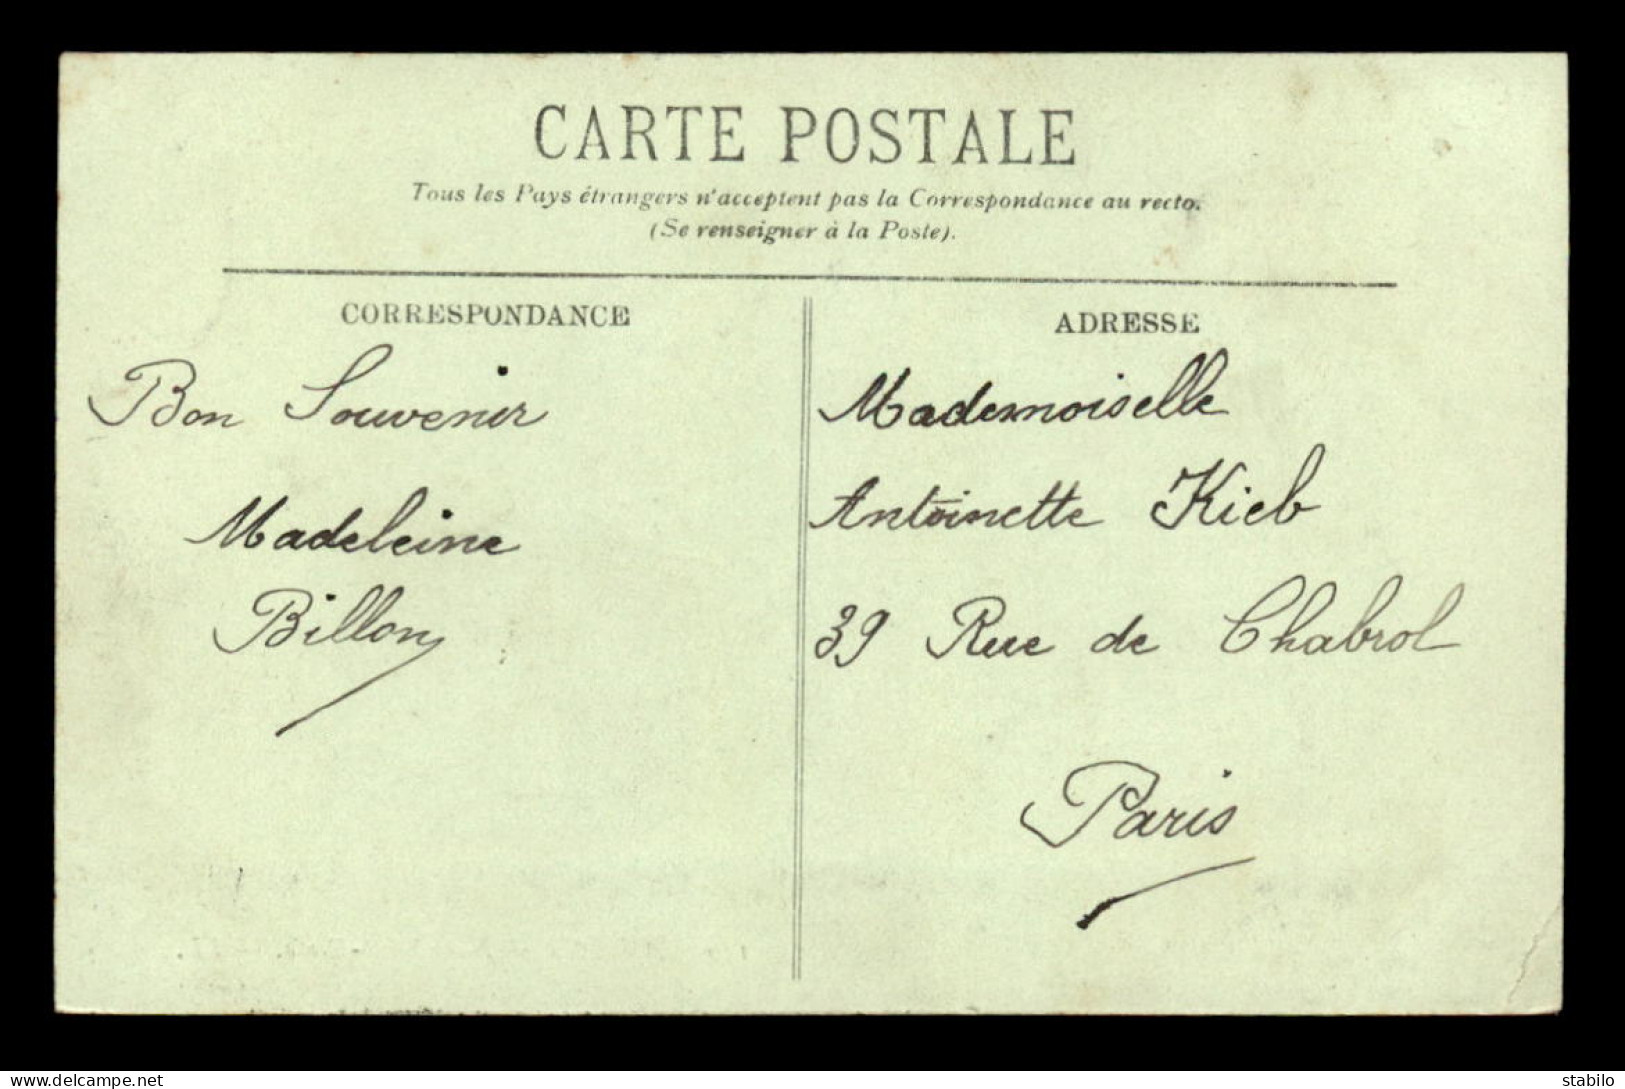 CARTE POSTALE
Tous les Pays étrangers n'acceptent pas la Correspondance au recto.
(Se renseigner à la Poste).
CORRESPONDANCE
Bon Souvenir
Madeleine
Billon
ADRESSE
Mademoiselle
Antoinette Kieb
39 Rue de Chabrol
Paris
www.delcampe.net
stabilo